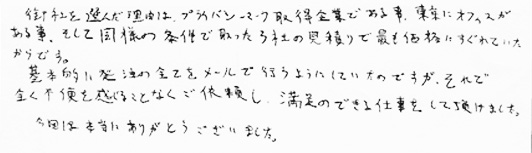 御社を選んだ理由は、プライバシーマーク取得企業である事、東京にオフィスが
ある事、そして同様の条件で取った3社の見積りで最も価格にすぐれていた
からです。
基本的に発注の全てをメールで行うようにしていたのですが、それで
全く不便を感じることなくご依頼し、満足のできる仕事をして頂けました。
今回は本当にありがとうございました。